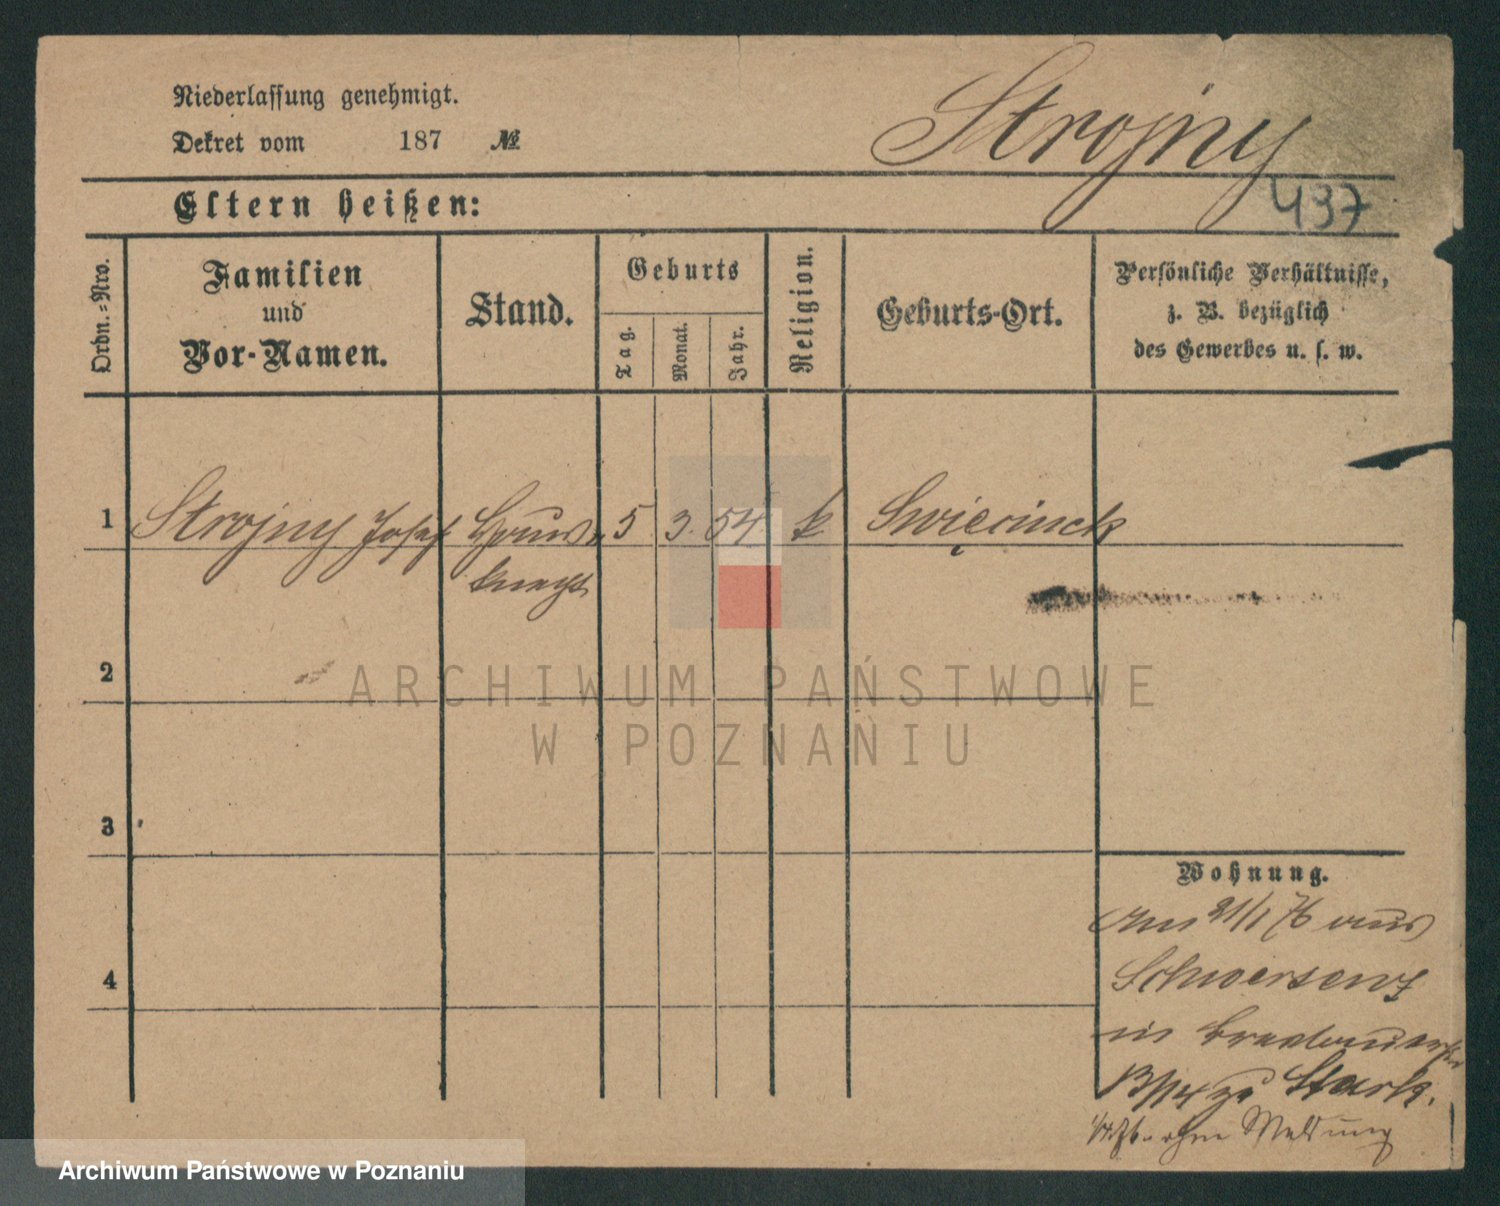 Niederlassung genehmigt.
Dekret vom 187 №
Strojny
Eltern heißen:
437
Ordn.=Nro.
Familien
und
Vor-Namen.
Stand.
Geburts
Tag.
Monat.
Jahr.
Religion.
Geburts-Ort.
Persönliche Verhältnisse,
z. B. bezüglich
des Gewerbes u. s. w.
1 Strojny Josef Haus- 5 3. 54. k Swięcinek
knecht
2
3
4
Wohnung.
Am 21/1 76 aus
Schwersenz
in
13/14 zu Stark.
ohne Meldung
ARCHIWUM PAŃSTWOWE
W POZNANIU
Archiwum Państwowe w Poznaniu